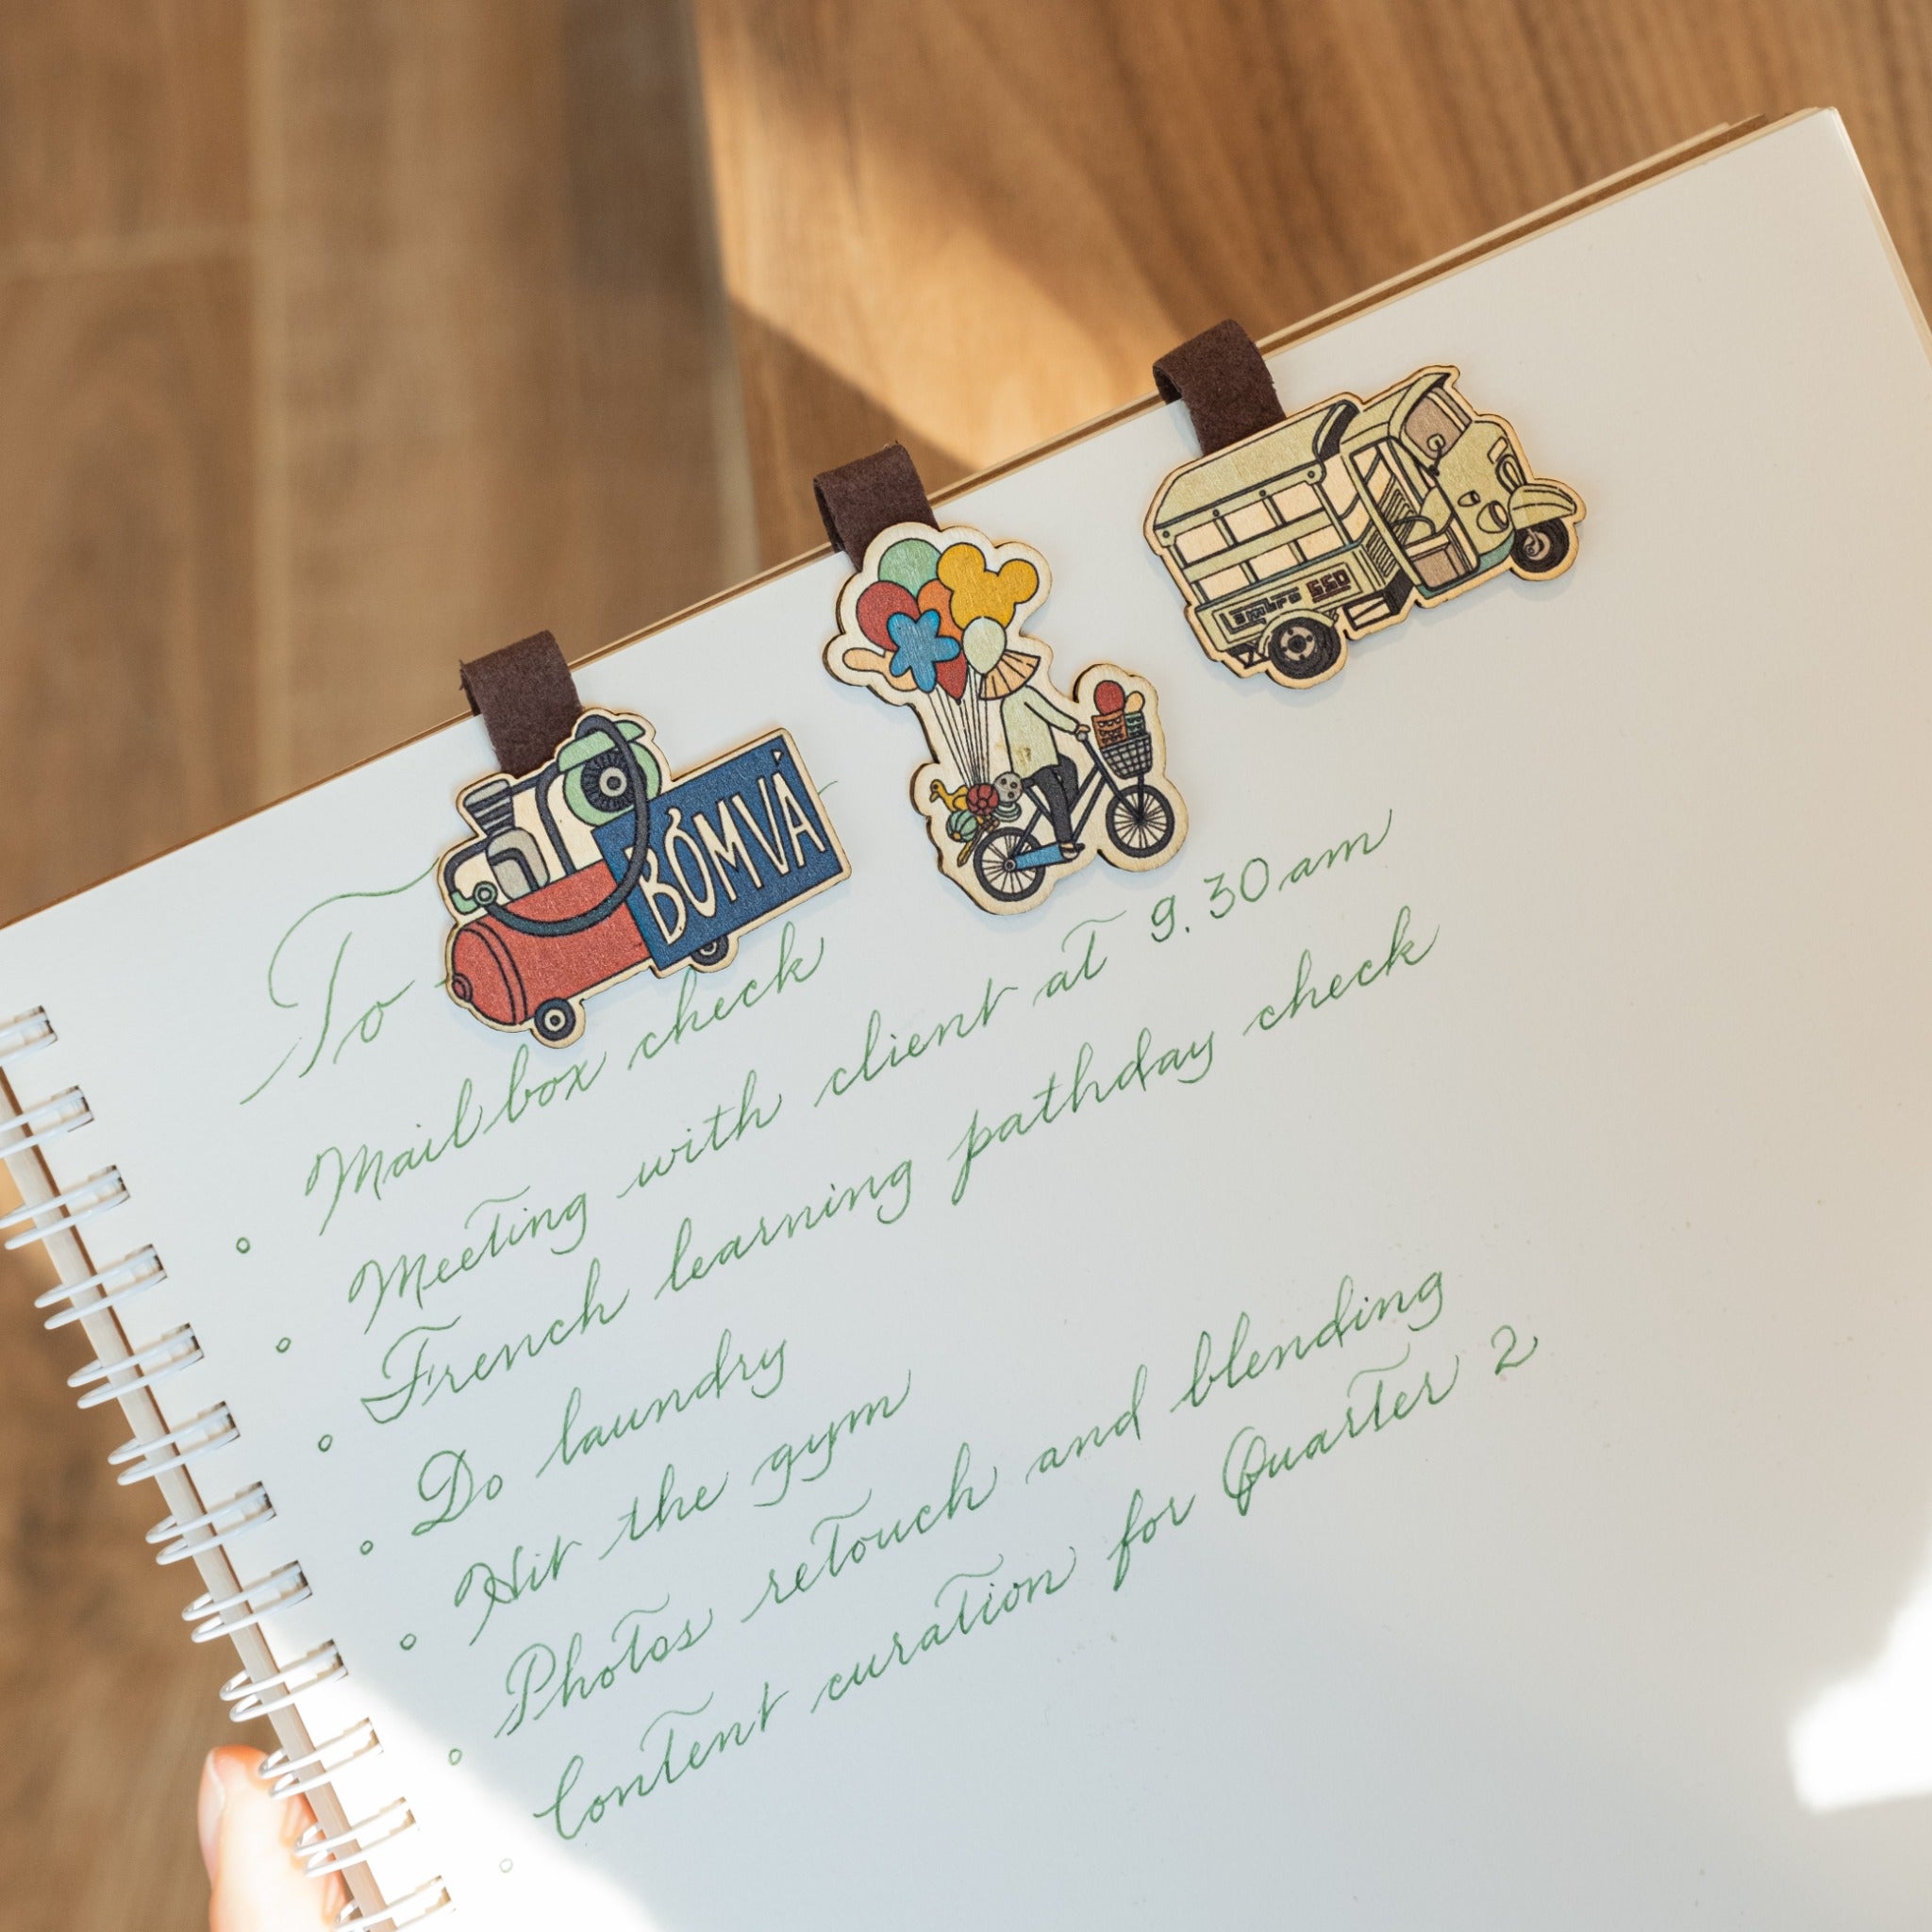 BƠM VÁ
Lambro 550
To
Mailbox check
Meeting with client at 9.30 am
French learning pathday check
Do laundry
Hit the gym
Photos retouch and blending
Content curation for Quarter 2